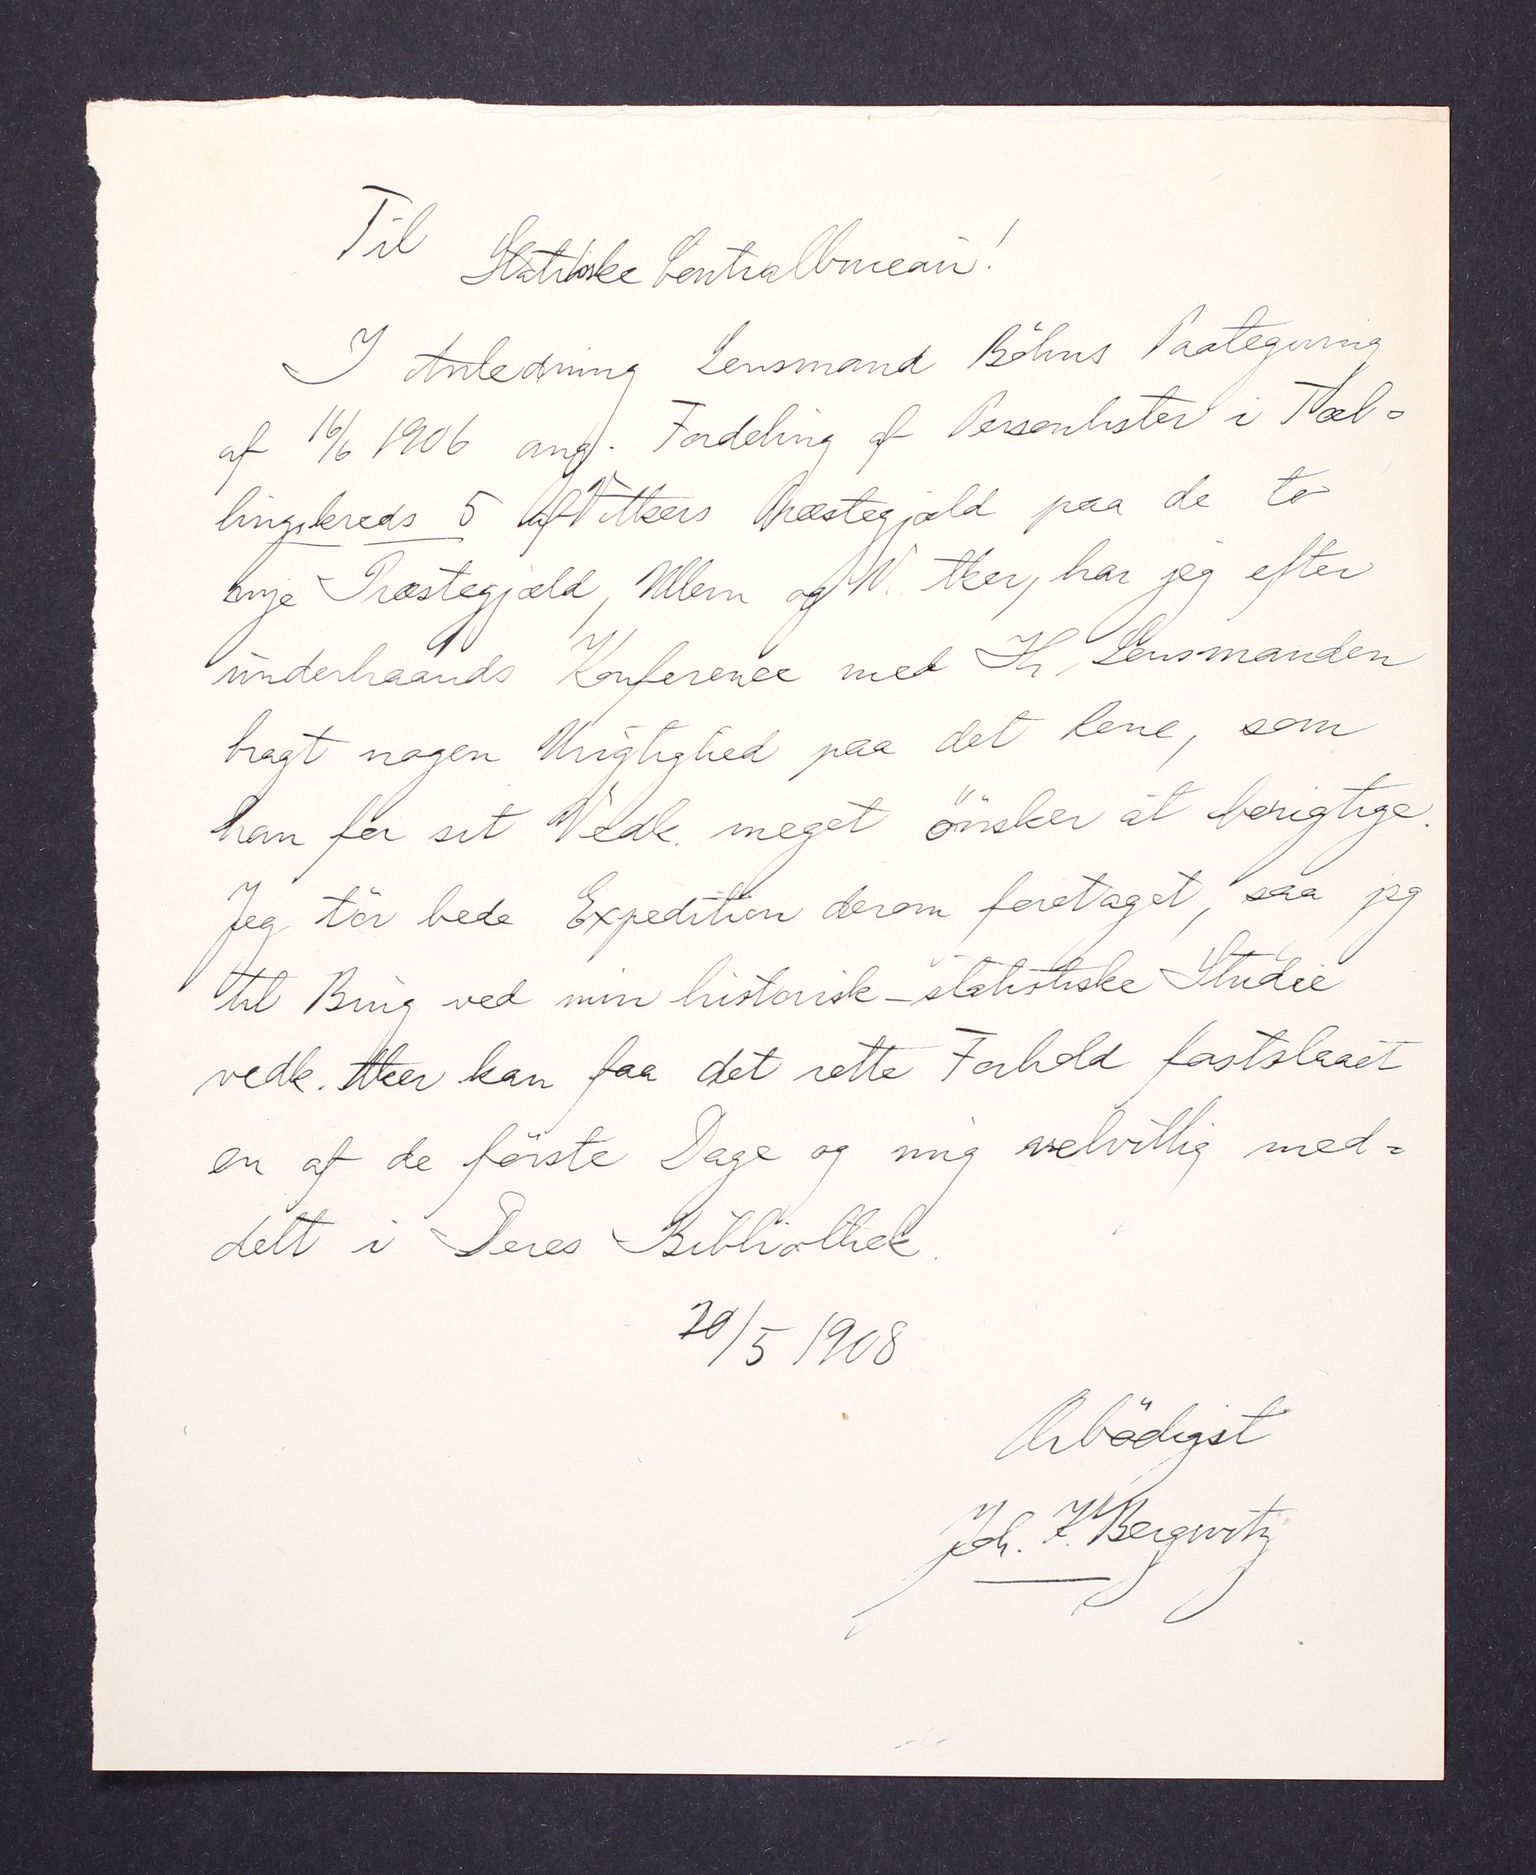 Til
Statistiske Centralbureau!
I Anledning Lensmand Böhns Paategning
af 16/6 1906 ang. Fordeling af Personlister i Tæl=
lingskreds 5 af V. Akers Præstegjæld paa de to
nye Præstegjæld, Ullern og V. Aker, har jeg efter
underhaands Konference med Hr. Lensmanden
bragt nogen Urigtighed paa det Rene, som
han for sit Vedk. meget önsker at berigtige.
Jeg tör bede Expedition derom foretaget, saa jeg
til Brug ved min historisk-statistiske Studie
vedk. Aker kan faa det rette Forhold fastslaaet
en af de förste Dage og mig velvillig med=
delt i Deres Bibliothek.
20/5 1908
Ærbödigst
Joh. K. Bergwitz